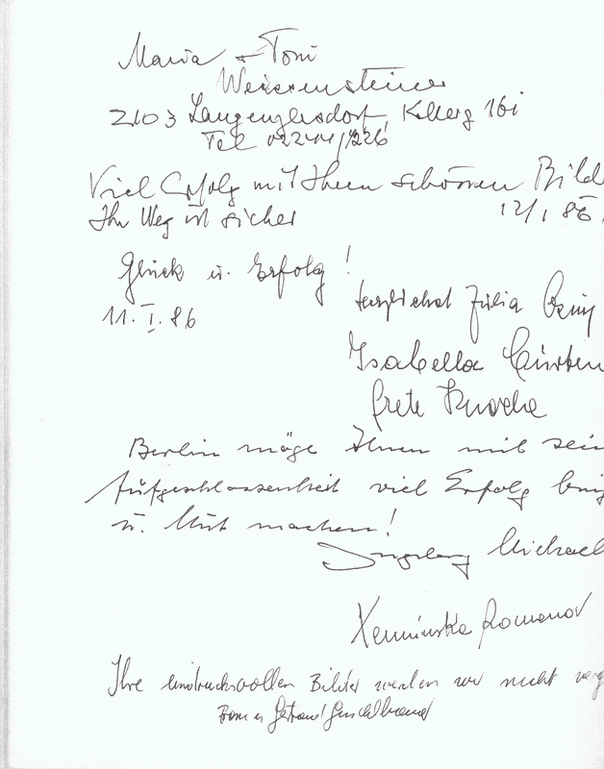 Maria + Toni
Weissensteiner
2103 Langenzersdorf, Kellerg 16i
Tel 02244/
Viel Erfolg mit Ihren schönen Bild
Ihr Weg ist sicher
12/1 86.
Glück u. Erfolg!
herzlichst Julia
11. I. 86
Isabella
Grete
Berlin möge Ihnen mit sein
Aufgeschlossenheit viel Erfolg bring
u. Mut machen!
Ingeborg Michael
Romana
Ihre eindrucksvollen Bilder werden wir nicht verg